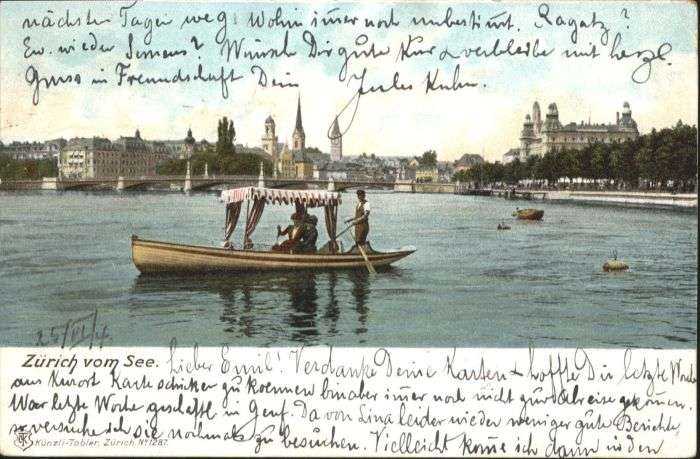 nächsten Tagen weg! Wohin imer noch unbestimt. Ragatz?
Ev. wieder Semens? Wünsch Dir gute Kur & verbleibe mit herzl.
Gruss in Freundschaft Dein Jules Kuhn.
25/VI/4
Zürich vom See. Lieber Emil! Verdanke Deine Karten & hoffte Dir letzte Woche
aus Kurort Karte schicken zu koennen bin aber imer noch nicht zur Abreise gekomen.
War letzte Woche geschäftl in Genf. Da von Lina leider wieder weniger gute Berichte,
so versuche ich Sie nochmals zu besuchen. Vielleicht kome ich dann in den
Künzli-Tobler, Zürich. No 1287.